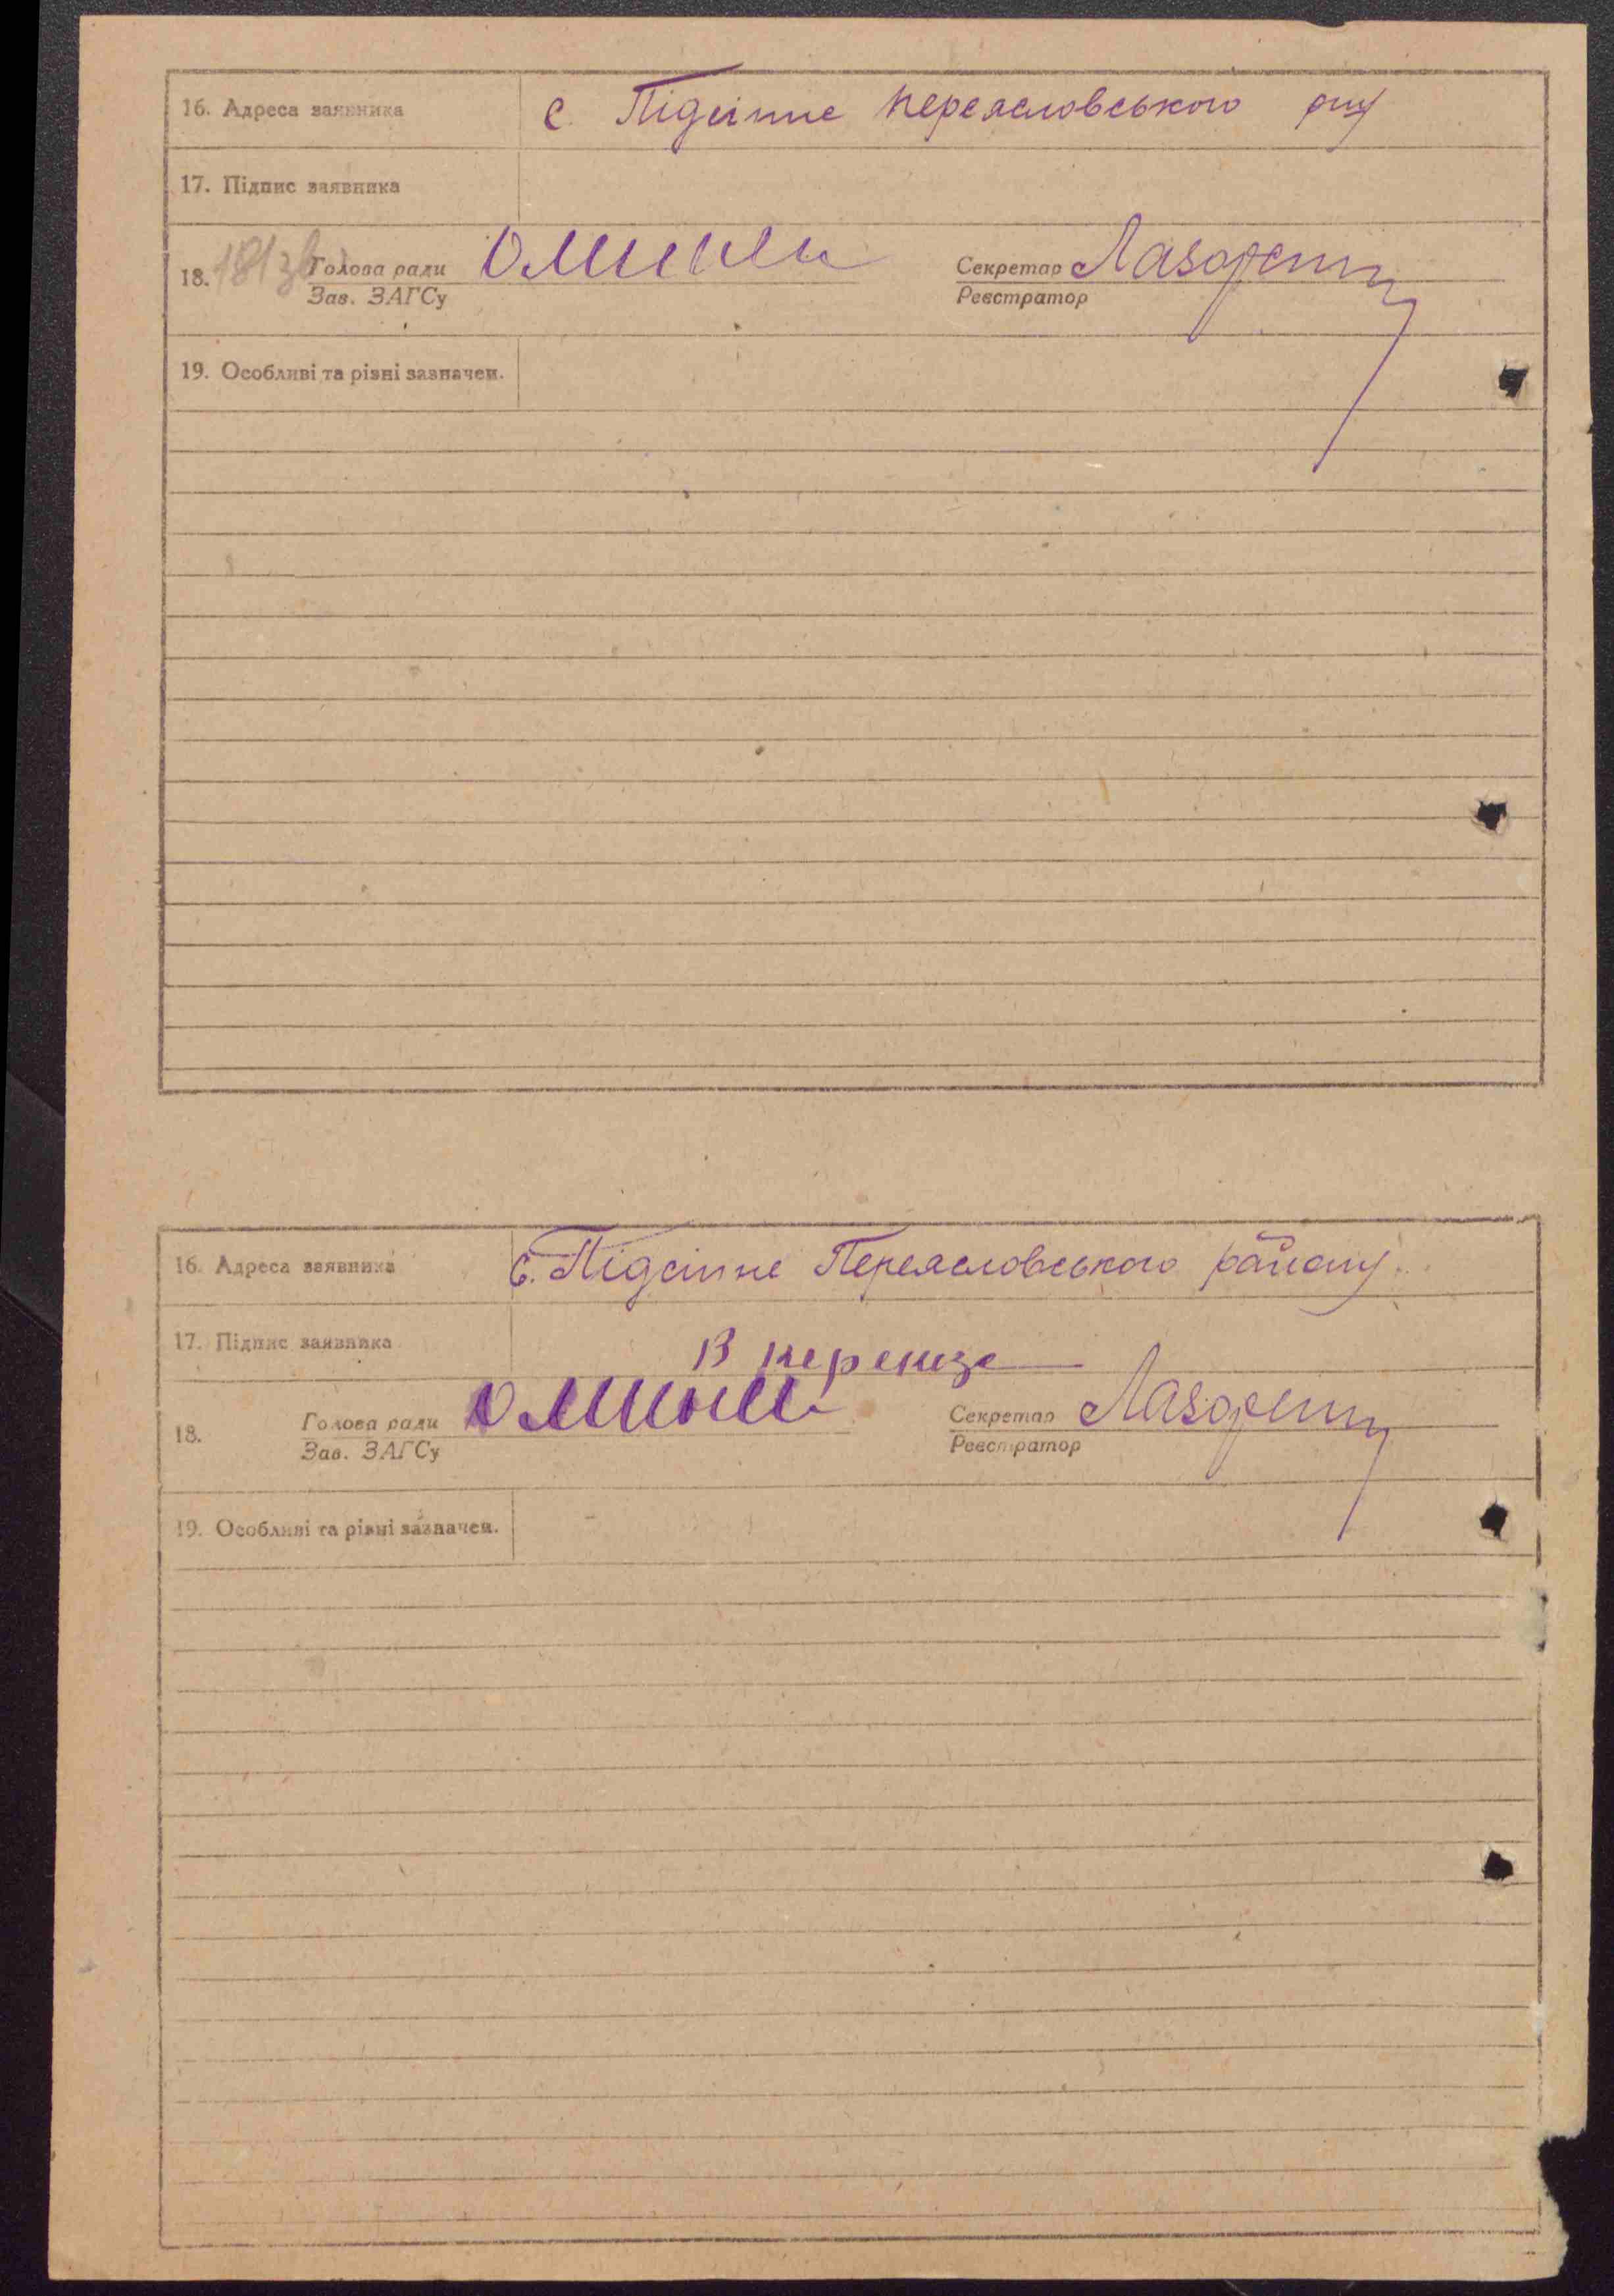 16. Адреса заявника с. Підсінне Переясловського р-ну
17. Підпис заявника
18. 181зв Голова ради Секретар Лазоренко
Зав. ЗАГСу Реєстратор
19. Особливі та різні зазначен.
16. Адреса заявника с. Підсінне Переясловського району.
17. Підпис заявника
18. Голова ради Секретар Лазоренко
Зав. ЗАГСу Реєстратор
19. Особливі та різні зазначен.